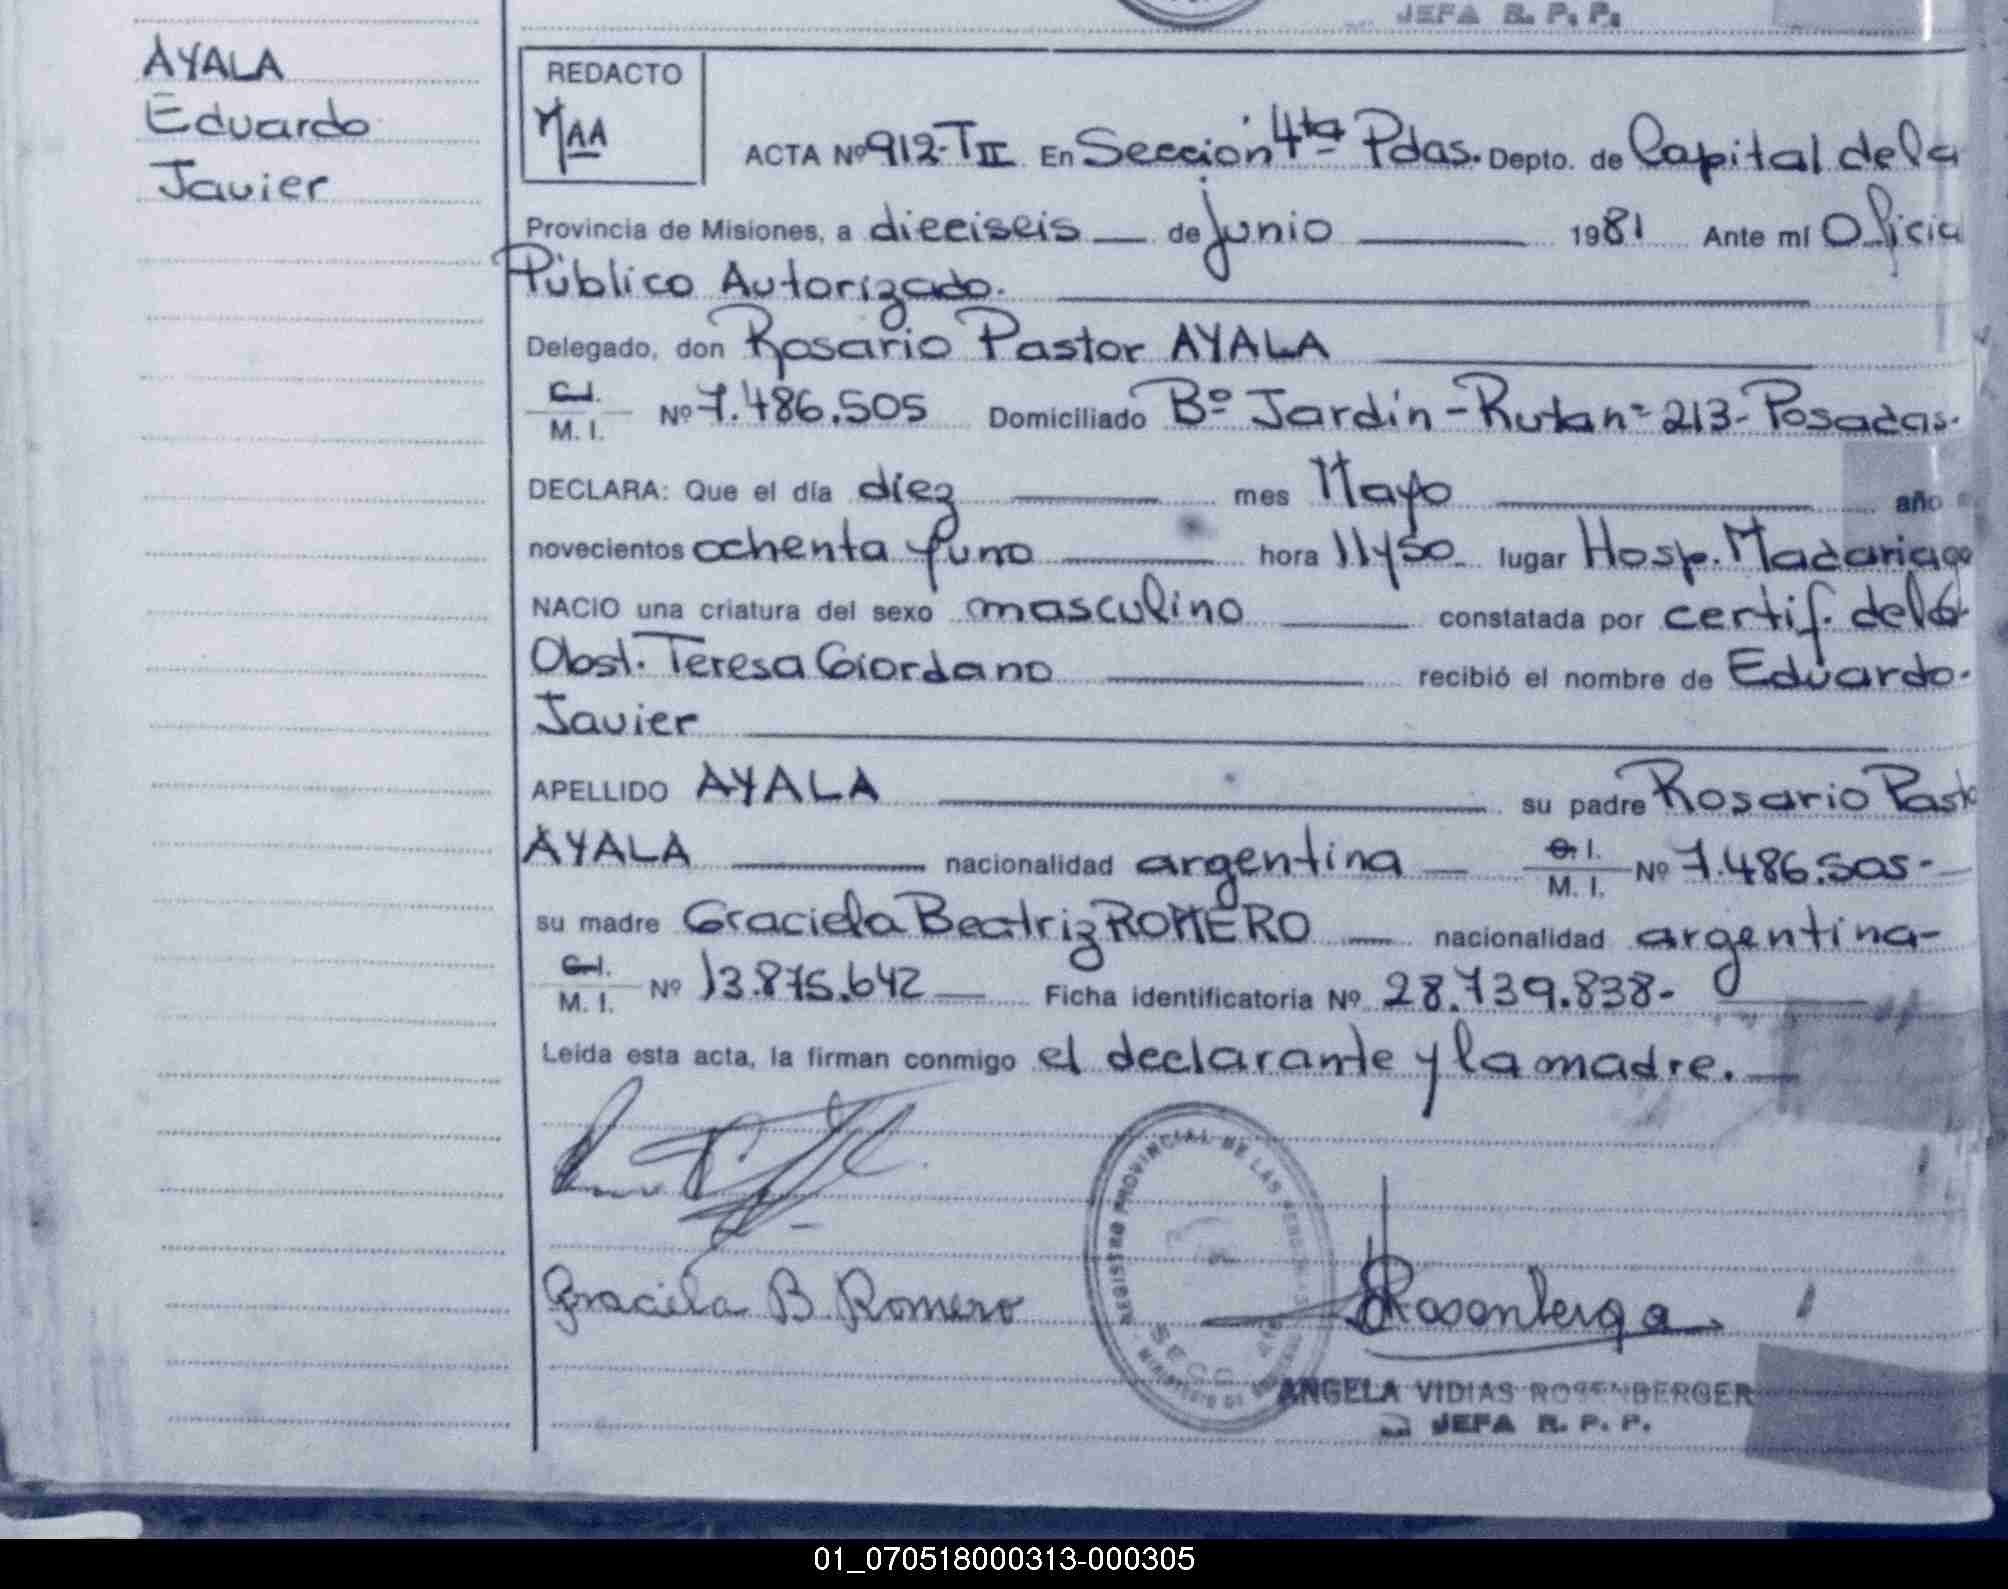 JEFA R. P. P.
AYALA
Eduardo
Javier
REDACTO
MAA
ACTA Nº 912-TII En Sección 4ta Pdas. Depto. de Capital de la
Provincia de Misiones, a dieciseis de junio 1981 Ante mí Oficial
Público Autorizado.
Delegado, don Rosario Pastor AYALA
C.I.
M. I. Nº 7.486.505 Domiciliado Bº Jardín - Ruta nº 213 - Posadas.
DECLARA: Que el día diez mes Mayo año
novecientos ochenta y uno hora 11 y 50 lugar Hosp. Madariaga
NACIO una criatura del sexo masculino constatada por certif. de la
Obst. Teresa Giordano recibió el nombre de Eduardo.
Javier
APELLIDO AYALA su padre Rosario Pasto
AYALA nacionalidad argentina C. I.
M. I. Nº 7.486.505-
su madre Graciela Beatriz ROMERO nacionalidad argentina-
C.I.
M. I. Nº 13.875.642 Ficha identificatoria Nº 28.739.838-
Leída esta acta, la firman conmigo el declarante y la madre.
REGISTRO PROVINCIAL DE LAS
SECC. 4ta
MINISTERIO DE
Graciela B. Romero
ANGELA VIDIAS ROSENBERGER
JEFA R. P. P.
01_070518000313-000305